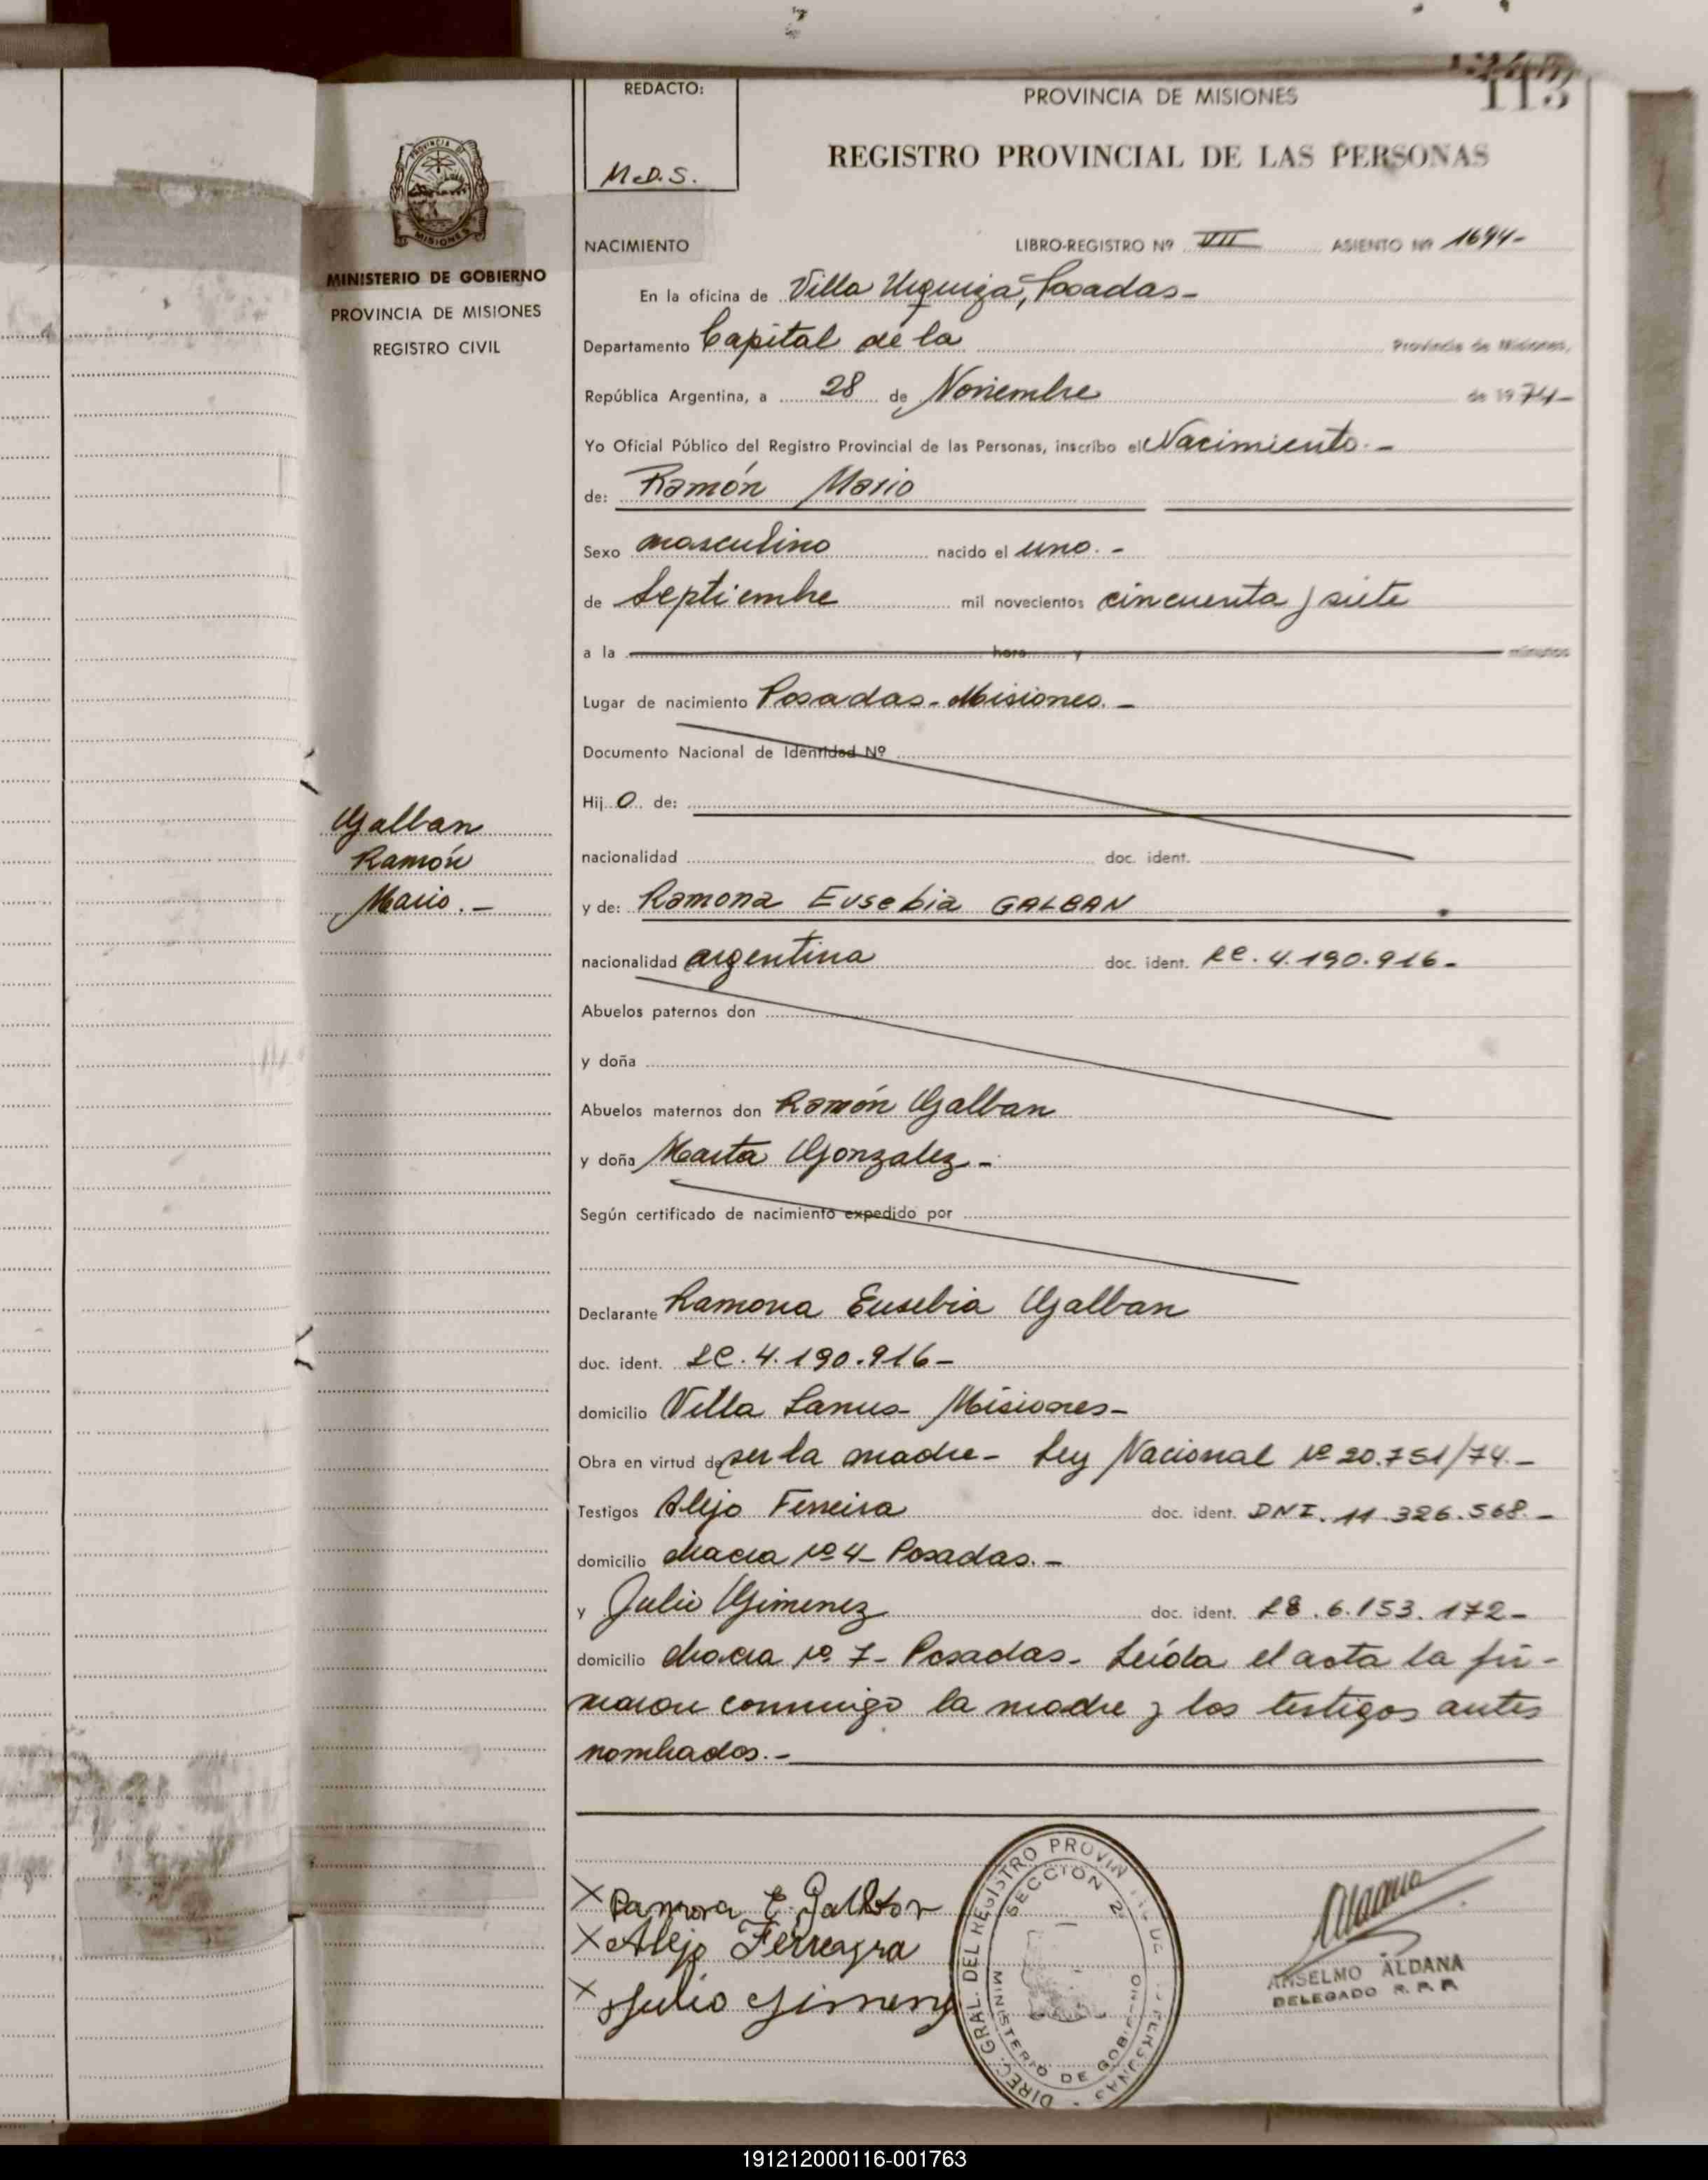 REDACTO:
M.D.S.
PROVINCIA DE MISIONES
113
REGISTRO PROVINCIAL DE LAS PERSONAS
PROVINCIA DE
MISIONES
MINISTERIO DE GOBIERNO
PROVINCIA DE MISIONES
REGISTRO CIVIL
Galban
Ramón
Mario.-
NACIMIENTO LIBRO-REGISTRO Nº VII ASIENTO Nº 1694-
En la oficina de Villa Urquiza, Posadas-
Departamento Capital de la Provincia de Misiones,
República Argentina, a 28 de Noviembre de 1974-
Yo Oficial Público del Registro Provincial de las Personas, inscribo el Nacimiento.-
de: Ramón Mario
Sexo masculino nacido el uno.-
de Septiembre mil novecientos cincuenta y siete
a la hora y minutos
Lugar de nacimiento Posadas-Misiones.-
Documento Nacional de Identidad Nº
Hijo de:
nacionalidad doc. ident.
y de: Ramona Eusebia GALBAN
nacionalidad argentina doc. ident. LC. 4.190.916-
Abuelos paternos don
y doña
Abuelos maternos don Ramón Galban
y doña Marta Gonzalez.-
Según certificado de nacimiento expedido por
Declarante Ramona Eusebia Galban
doc. ident. LC. 4.190.916-
domicilio Villa Lanus- Misiones-
Obra en virtud de ser la madre- Ley Nacional Nº 20.751/74.-
Testigos Alejo Ferreira doc. ident. DNI. 11.326.568.-
domicilio chacra Nº 4- Posadas.-
y Julio Gimenez doc. ident. 6.153.172-
domicilio chacra Nº 7- Posadas- Leída el acta la fir-
maron conmigo la madre y los testigos antes
nombrados.-
X Ramona E Galban
X Alejo Ferreyra
X Julio Gimenez
DIREC. GRAL. DEL REGISTRO PROVIN
SECCION 2
MINISTERIO DE GOBIERNO
ANSELMO ALDANA
DELEGADO R. P. P.
191212000116-001763